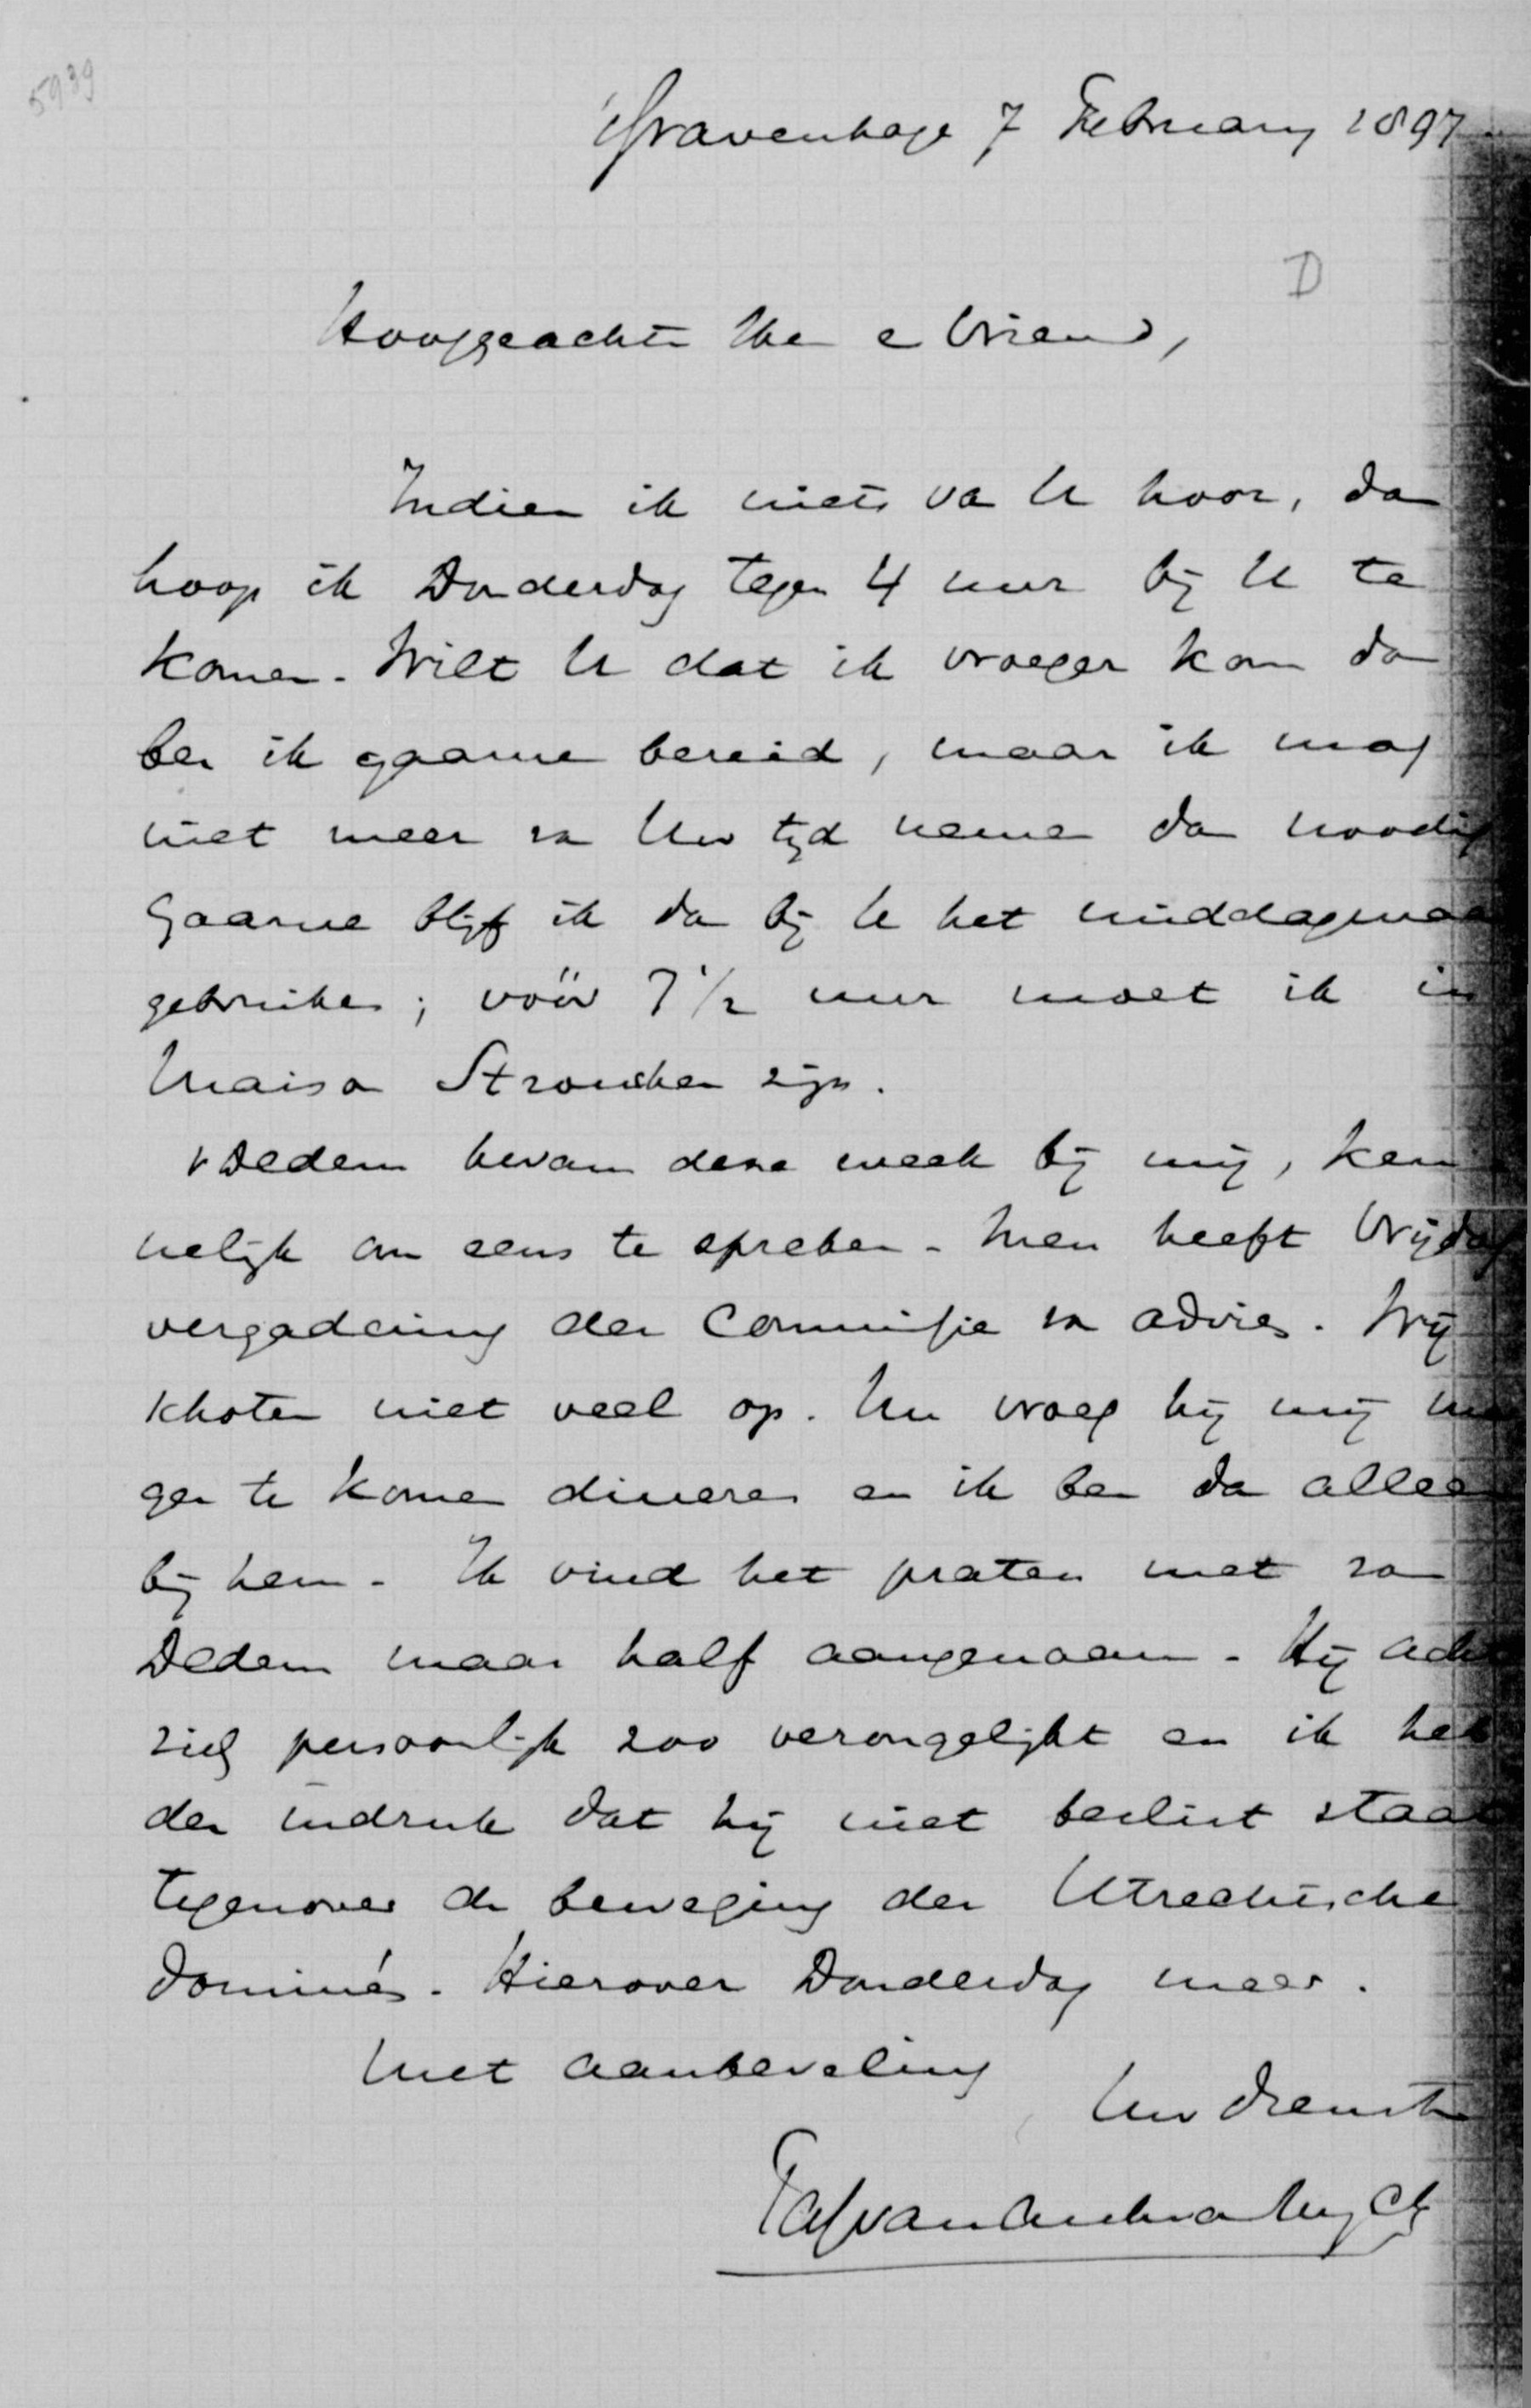 5939
's Gravenhage 7 February 1897
D
Hooggeachte Heer en Vriend,
Indien ik niets van U hoor, dan
hoop ik Donderdag tegen 4 uur bij U te
komen. Wilt U dat ik vroeger kom dan
ben ik gaarne bereid, maar ik mag
niet meer van Uw tijd nemen dan noodig
Gaarne blijf ik dan bij U het middagmaal
gebruiken; vóór 7 1/2 uur moet ik in
Maison Stroucken zijn.
v Dedem kwam deze week bij mij, ken
nelijk om eens te spreken. Men heeft Vrijdag
vergadering der Commissie van advies. Wij
schoten niet veel op. Nu vroeg hij mij mor
gen te komen dineren en ik ben dan alleen
bij hem. Ik vind het praten met van
Dedem maar half aangenaam. Hij acht
zich persoonlijk zoo verongelijkt en ik heb
den indruk dat hij niet beslist staat
tegenover de beweging der Utrechtsche
dominés. Hierover Donderdag meer.
Met aanbeveling
Uw dienstv